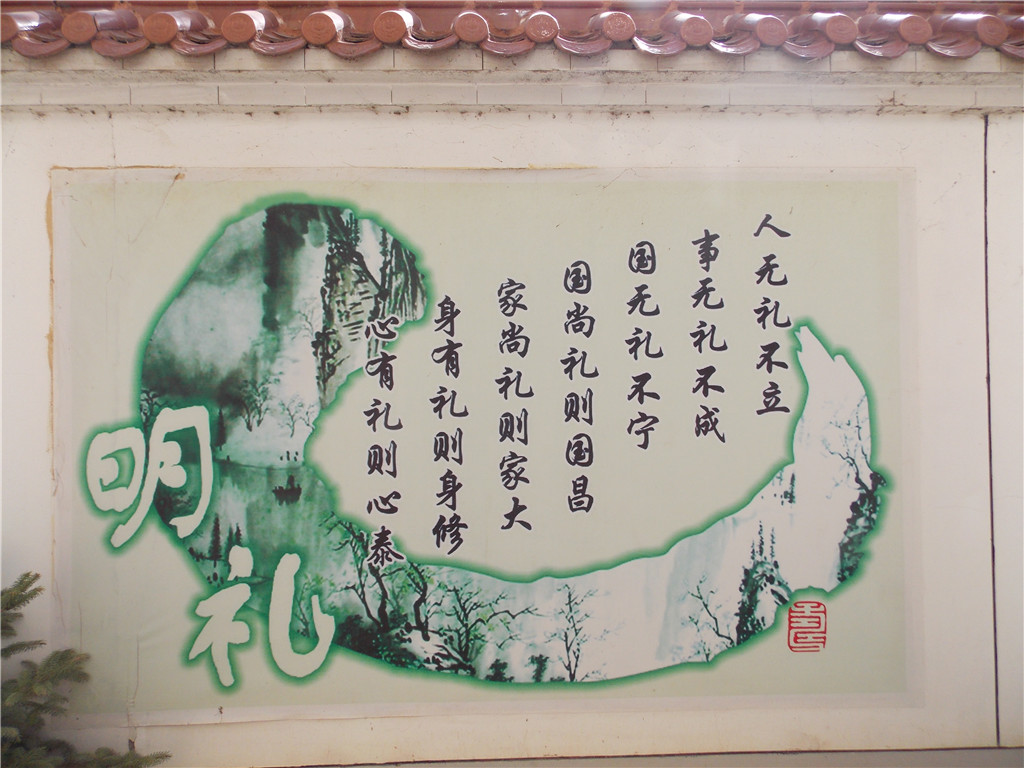 人无礼不立
事无礼不成
国无礼不宁
国尚礼则国昌
家尚礼则家大
身有礼则身修
心有礼则心泰
明礼